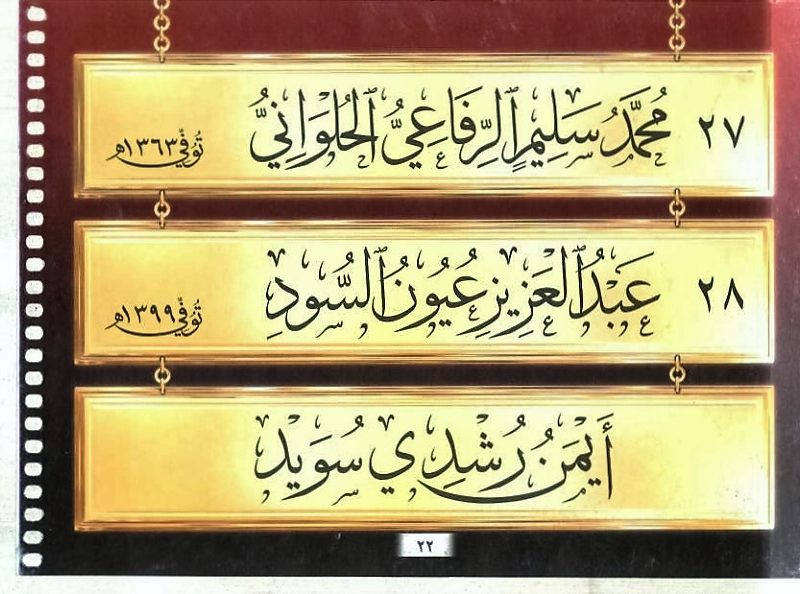 ٢٧ مُحَمَّدُ سَلِيمٍ ٱلرِّفَاعِيُّ ٱلحُلْوَانِيُّ تُوُفِّيَ ١٣٦٣هـ
٢٨ عَبْدُ ٱلعَزِيزِ عُيُونُ ٱلسُّودِ تُوُفِّيَ ١٣٩٩هـ
أَيْمَنُ رُشْدِي سُوَيْد
٢٢